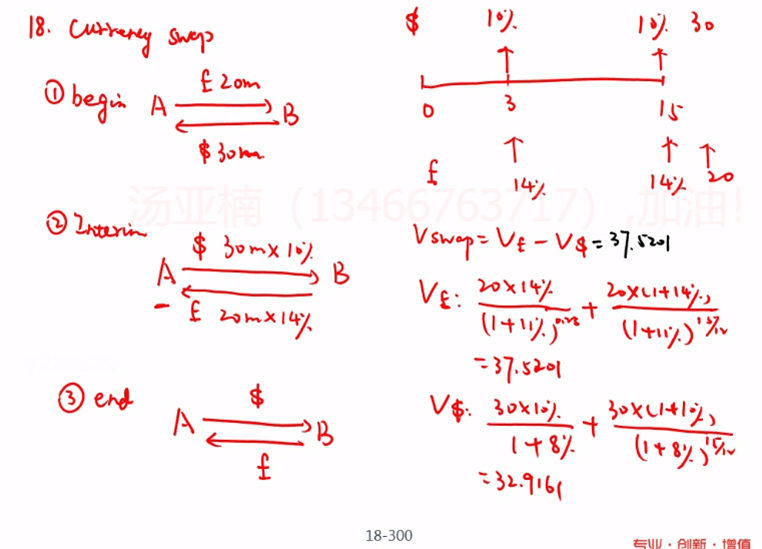 18. Currency swap
① begin A £20m B
$30m
② Interim
$ 30m×10%
A B
- £ 20m×14%
③ end $
A B
£
$ 10% 10% 30
0 3 15
£ 14% 14% 20
汤亚楠（13466763717）,加油!
Vswap = V£ - V$ = 37.5201
V£: 20×14% / (1+11%)^0.25 + 20×(1+14%) / (1+11%)^15/12
=37.5201
V$: 30×10% / 1+8% + 30×(1+10%) / (1+8%)^15/12
=32.9161
18-300
专业·创新·增值